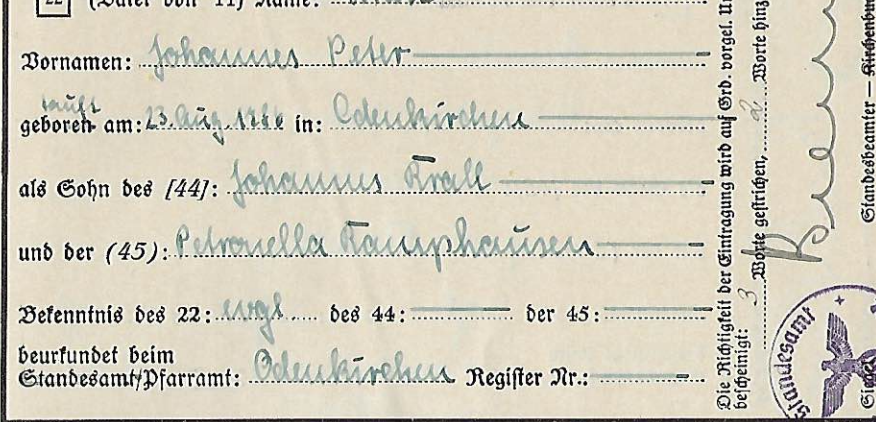 22 (Vater von 11) Name:
Vornamen: Johannes Peter
tauft
geboren am: 23. Aug. 1786 in: Odenkirchen
als Sohn des [44]: Johannes Krall
und der (45): Petronella Kamphausen
Bekenntnis des 22: evgl. des 44: der 45:
beurkundet beim
Standesamt/Pfarramt: Odenkirchen Register Nr.:
Die Richtigkeit der Eintragung wird auf Grd. vorgel.
bescheinigt: 3 Worte gestrichen, 2 Worte
Standesbeamter — Kirchenbu
Standesamt